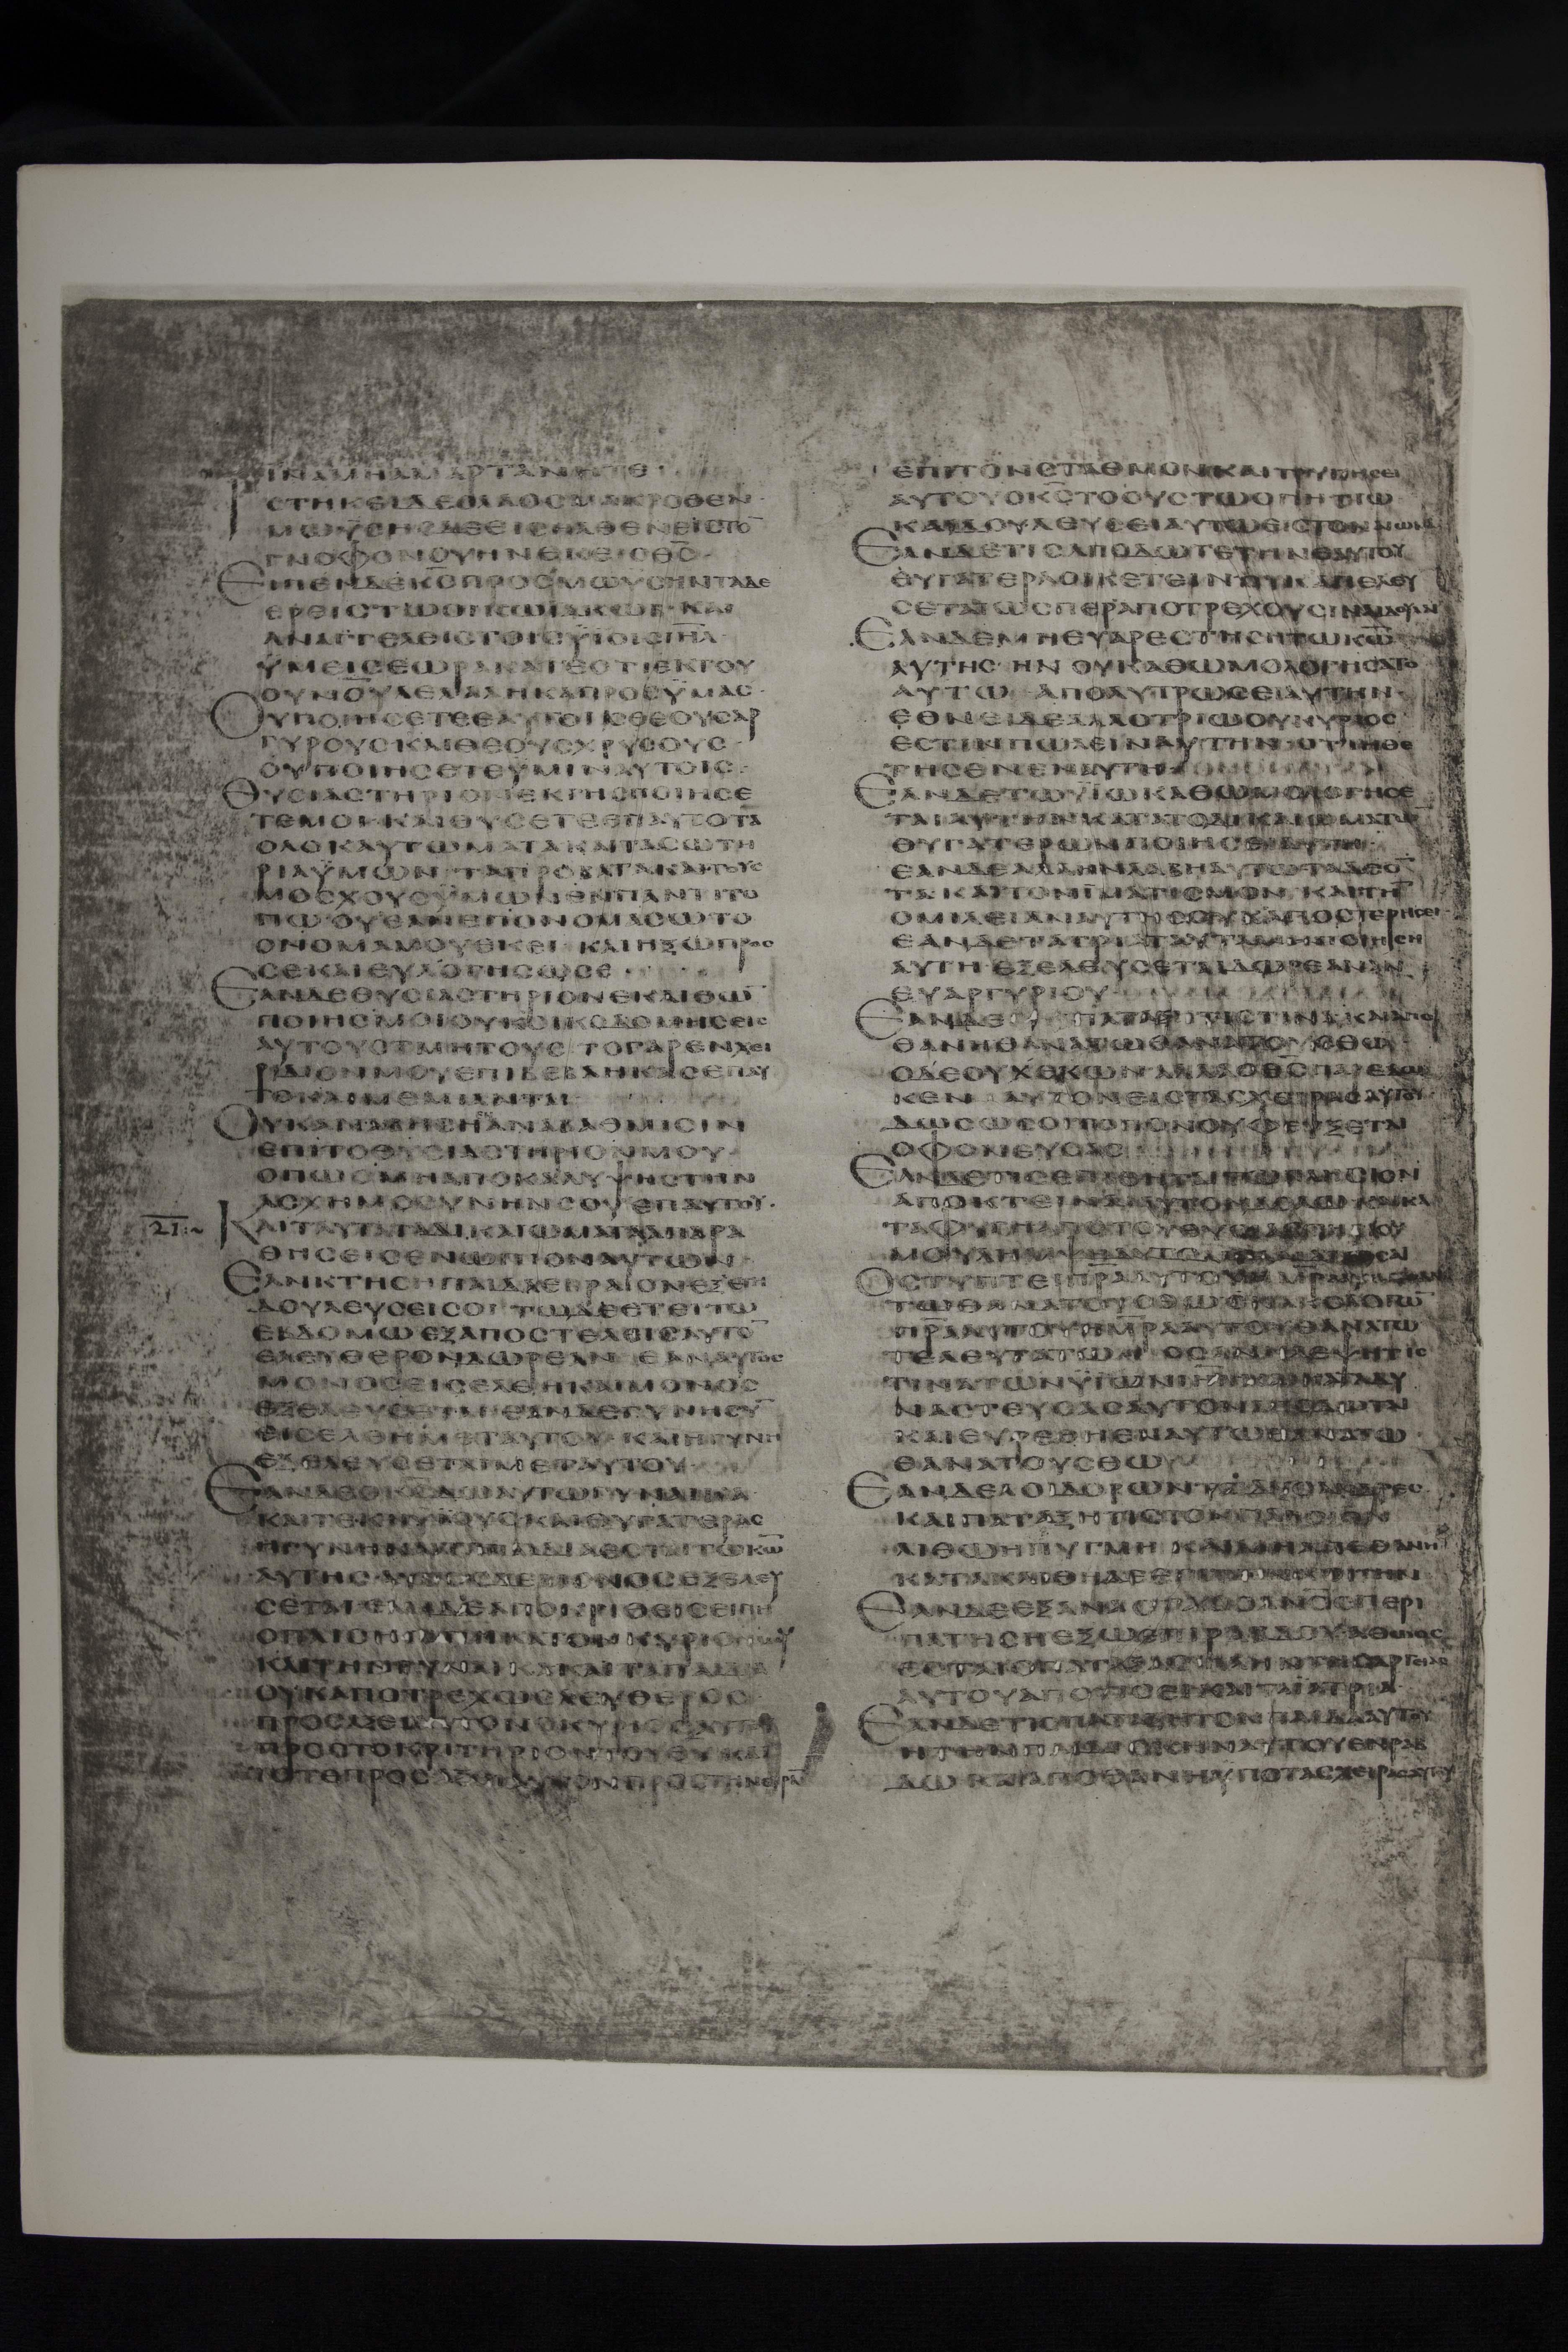 ΪΝΑΜΗΑΜΑΡΤΑΝΗΤΕ·
ΪСΤΗΚΕΙΔΕΟΛΑΟСΜΑΚΡΟΘΕΝ·
ΜΩΫСΗСΔΕΕΙСΗΛΘΕΝΕΙСΤΟ̅
ΓΝΟΦΟΝΟΥΗΝΕΚΕΙΟΘ̅С̅·
ΕΙΠΕΝΔΕΚ̅С̅ΠΡΟСΜΩΥСΗΝΤΑΔΕ
ΕΡΕΙСΤΩΟΙΚΩΙΑΚΩΒ·ΚΑΙ
ΑΝΑΓΓΕΛΕΙСΤΟΙСΫΙΟΙСΙΗ̅Λ̅·
ΫΜΕΙСΕΩΡΑΚΑΤΕΟΤΙΕΚΤΟΥ
ΟΥΝΟ̅Υ̅ΛΕΛΑΛΗΚΑΠΡΟСΫΜΑС·
ΟΥΠΟΙΗСΕΤΕΕΑΥΤΟΙСΘΕΟΥСΑΡ
ΓΥΡΟΥСΚΑΙΘΕΟΥСΧΡΥСΟΥС·
ΟΥΠΟΙΗСΕΤΕΫΜΙΝΑΥΤΟΙС·
ΘΥСΙΑСΤΗΡΙΟΝΕΚΓΗСΠΟΙΗСΕ
ΤΕΜΟΙ·ΚΑΙΘΥСΕΤΕΕΠΑΥΤΟΤΑ
ΟΛΟΚΑΥΤΩΜΑΤΑΚΑΙΤΑСΩΤΗ
ΡΙΑΫΜΩΝ·ΤΑΠΡΟΒΑΤΑΚΑΙΤΟΥС
ΜΟСΧΟΥСΫΜΩΝΕΝΠΑΝΤΙΤΟ
ΠΩΟΥΕΑΝΕΠΟΝΟΜΑСΩΤΟ
ΟΝΟΜΑΜΟΥΕΚΕΙ·ΚΑΙΗΞΩΠΡΟС
СΕΚΑΙΕΥΛΟΓΗСΩСΕ·
ΕΑΝΔΕΘΥСΙΑСΤΗΡΙΟΝΕΚΛΙΘΩ̅
ΠΟΙΗСΜΟΙΟΥΚΟΙΚΟΔΟΜΗСΕΙС
ΑΥΤΟΥСΤΜΗΤΟΥС·ΤΟΓΑΡΕΝΧΕΙ
ΡΙΔΙΟΝΜΟΥΕΠΙΒΕΒΛΗΚΑСΕΠΑΥ
ΤΟΚΑΙΜΕΜΙΑΝΤΑΙ·
ΟΥΚΑΝΑΒΗСΗΑΝΑΒΑΘΜΙСΙΝ
ΕΠΙΤΟΘΥСΙΑСΤΗΡΙΟΝΜΟΥ·
ΟΠΩСΜΗΑΠΟΚΑΛΥΨΗСΤΗΝ
ΑСΧΗΜΟСΥΝΗΝСΟΥΕΠΑΥΤΟΥ·
21:~ ΚΑΙΤΑΥΤΑΤΑΔΙΚΑΙΩΜΑΤΑΑΠΑΡΑ
ΘΗСΕΙСΕΝΩΠΙΟΝΑΥΤΩΝ·
ΕΑΝΚΤΗСΗΠΑΙΔΑΕΒΡΑΙΟΝΕΞΕΤΗ
ΔΟΥΛΕΥСΕΙСΟΙ·ΤΩΔΕΕΤΕΙΤΩ
ΕΒΔΟΜΩΕΞΑΠΟСΤΕΛΕΙСΑΥΤΟ̅
ΕΛΕΥΘΕΡΟΝΔΩΡΕΑΝ·ΕΑΝΑΥΤΟС
ΜΟΝΟСΕΙСΕΛΘΗΚΑΙΜΟΝΟС
ΕΞΕΛΕΥСΕΤΑΙ·ΕΑΝΔΕΓΥΝΗСΥ̅
ΕΙСΕΛΘΗΜΕΤΑΥΤΟΥ·ΚΑΙΗΓΥΝΗ
ΕΞΕΛΕΥСΕΤΑΙΜΕΤΑΥΤΟΥ·
ΕΑΝΔΕΟΚ̅С̅ΔΩΑΥΤΩΓΥΝΑΙΚΑ
ΚΑΙΤΕΚΗΥΙΟΥСΚΑΙΘΥΓΑΤΕΡΑС
ΗΓΥΝΗΚΑΙΤΑΠΑΙΔΙΑΕСΤΑΙΤΩΚ̅Ω̅
ΑΥΤΗС·ΑΥΤΟСΔΕΜΟΝΟСΕΞΕΛΕΥ
СΕΤΑΙ·ΕΑΝΔΕΑΠΟΚΡΙΘΕΙСΕΙΠΗ
ΟΠΑΙСΗΓΑΠΗΚΑΤΟΝΚΥΡΙΟΝΜΟΥ
ΚΑΙΤΗΝΓΥΝΑΙΚΑΚΑΙΤΑΠΑΙΔΙΑ
ΟΥΚΑΠΟΤΡΕΧΩΕΛΕΥΘΕΡΟС·
ΠΡΟСΑΞΕΙΑΥΤΟΝΟΚΥΡΙΟСΑΥΤΟΥ
ΠΡΟСΤΟΚΡΙΤΗΡΙΟΝΤΟΥΘ̅Υ̅·ΚΑΙ
ΤΟΤΕΠΡΟСΑΞΕΙΑΥΤΟΝΠΡΟСΤΗΝΘΥΡΑ̅
ΕΠΙΤΟΝСΤΑΘΜΟΝΚΑΙΤΡΥΠΗСΕΙ
ΑΥΤΟΥΟΚ̅С̅ΤΟΟΥСΤΩΟΠΗΤΙΩ·
ΚΑΙΔΟΥΛΕΥСΕΙΑΥΤΩΕΙСΤΟΝΑΙΩΝΑ
ΕΑΝΔΕΤΙСΑΠΟΔΩΤΕΤΗΝΕΑΥΤΟΥ
ΘΥΓΑΤΕΡΑΟΙΚΕΤΕΙΝΟΥΚΑΠΕΛΕΥ
СΕΤΑΙΩСΠΕΡΑΠΟΤΡΕΧΟΥСΙΝΑΙΔΟΥΛΑΙ
ΕΑΝΔΕΜΗΕΥΑΡΕСΤΗСΗΤΩΚ̅Ω̅
ΑΥΤΗС·ΗΝΟΥΚΑΘΩΜΟΛΟΓΗСΑΤΟ
ΑΥΤΩ·ΑΠΟΛΥΤΡΩСΕΙΑΥΤΗΝ·
ΕΘΝΕΙΔΕΑΛΛΟΤΡΙΩΟΥΚΥΡΙΟС
ΕСΤΙΝΠΩΛΕΙΝΑΥΤΗΝ·ΟΤΙΗΘΕ
ΤΗСΕΝΕΝΑΥΤΗ·
ΕΑΝΔΕΤΩΫΙΩΚΑΘΩΜΟΛΟΓΗСΕ
ΤΑΙΑΥΤΗΝΚΑΤΑΤΟΔΙΚΑΙΩΜΑΤΩ̅
ΘΥΓΑΤΕΡΩΝΠΟΙΗСΕΙΑΥΤΗ·
ΕΑΝΔΕΑΛΛΗΝΛΑΒΗΑΥΤΩΤΑΔΕΟ̅
ΤΑΚΑΙΤΟΝΪΜΑΤΙСΜΟΝ·ΚΑΙΤΗ̅
ΟΜΙΛΕΙΑΝΑΥΤΗСΟΥΚΑΠΟСΤΕΡΗСΕΙ·
ΕΑΝΔΕΤΑΤΡΙΑΤΑΥΤΑΜΗΠΟΙΗСΗ
ΑΥΤΗ·ΕΞΕΛΕΥСΕΤΑΙΔΩΡΕΑΝΑΝ
ΕΥΑΡΓΥΡΙΟΥ·
ΕΑΝΔΕ ΠΑΤΑΞΗΤΙСΤΙΝΑΚΑΙΑΠΟ
ΘΑΝΗΘΑΝΑΤΩΘΑΝΑΤΟΥСΘΩ·
ΟΔΕΟΥΧΕΚΩΝΑΛΛΑΟΘ̅С̅ΠΑΡΕΔΩ
ΚΕΝ ΑΥΤΟΝΕΙСΤΑСΧΕΙΡΑСΑΥΤΟΥ·
ΔΩСΩСΟΙΤΟΠΟΝΟΥΦΕΥΞΕΤΑΙ
ΟΦΟΝΕΥСΑС·
ΕΑΝΔΕΤΙСΕΠΙΘΗΤΑΙΤΩΠΛΗСΙΟΝ
ΑΠΟΚΤΕΙΝΑΙΑΥΤΟΝΔΟΛΩΚΑΙΚΑ
ΤΑΦΥΓΗΑΠΟΤΟΥΘΥСΙΑСΤΗΡΙΟΥ
ΟСΤΥΠΤΕΙΠ̅Ρ̅ΑΑΥΤΟΥΗΜ̅Ρ̅Α
ΤΩΘΑΝΑΤΟΥСΘΩ·ΟΚΑΚΟΛΟΓΩ̅
Π̅Ρ̅ΑΑΥΤΟΥΗΜ̅Ρ̅ΑΑΥΤΟΥΘΑΝΑΤΩ
ΤΕΛΕΥΤΑΤΩ·ΟСΕΑΝΚΛΕΨΗΤΙС
ΤΙΝΑΤΩΝΫΙΩΝΙΗ̅Λ̅ΚΑΙΚΑΤΑΔΥ
ΝΑСΤΕΥСΑСΑΥΤΟΝΑΠΟΔΩΤΑΙ
ΚΑΙΕΥΡΕΘΗΕΝΑΥΤΩΘΑΝΑΤΩ·
ΘΑΝΑΤΟΥСΘΩ
ΕΑΝΔΕΛΟΙΔΟΡΩΝΤΑΙΔΥΟΑΝΔΡΕС
ΚΑΙΠΑΤΑΞΗΤΙСΤΟΝΠΛΗСΙΟΝ
ΛΙΘΩΗΠΥΓΜΗ·ΚΑΙΜΗΑΠΟΘΑΝΗ
ΚΑΤΑΚΛΙΘΗΔΕΕΠΙΤΗΝΚΟΙΤΗΝ
ΕΑΝΔΕΕΞΑΝΑСΤΑСΟΑΝ̅Ο̅С̅ΠΕΡΙ
ΠΑΤΗСΗΕΞΩΕΠΙΡΑΒΔΟΥΑΘΩΙΟС
ΑΥΤΟΥΑΠΟΤΙСΕΙΚΑΙΤΑΪΑΤΡΙΑ·
ΕΑΝΔΕΤΙСΠΑΤΑΞΗΤΟΝΠΑΙΔΑΑΥΤΟΥ
ΗΤΗΝΠΑΙΔΙСΚΗΝΑΥΤΟΥΕΝΡΑΒ
ΔΩΚΑΙΑΠΟΘΑΝΗΥΠΟΤΑСΧΕΙΡΑСΑΥΤΟΥ